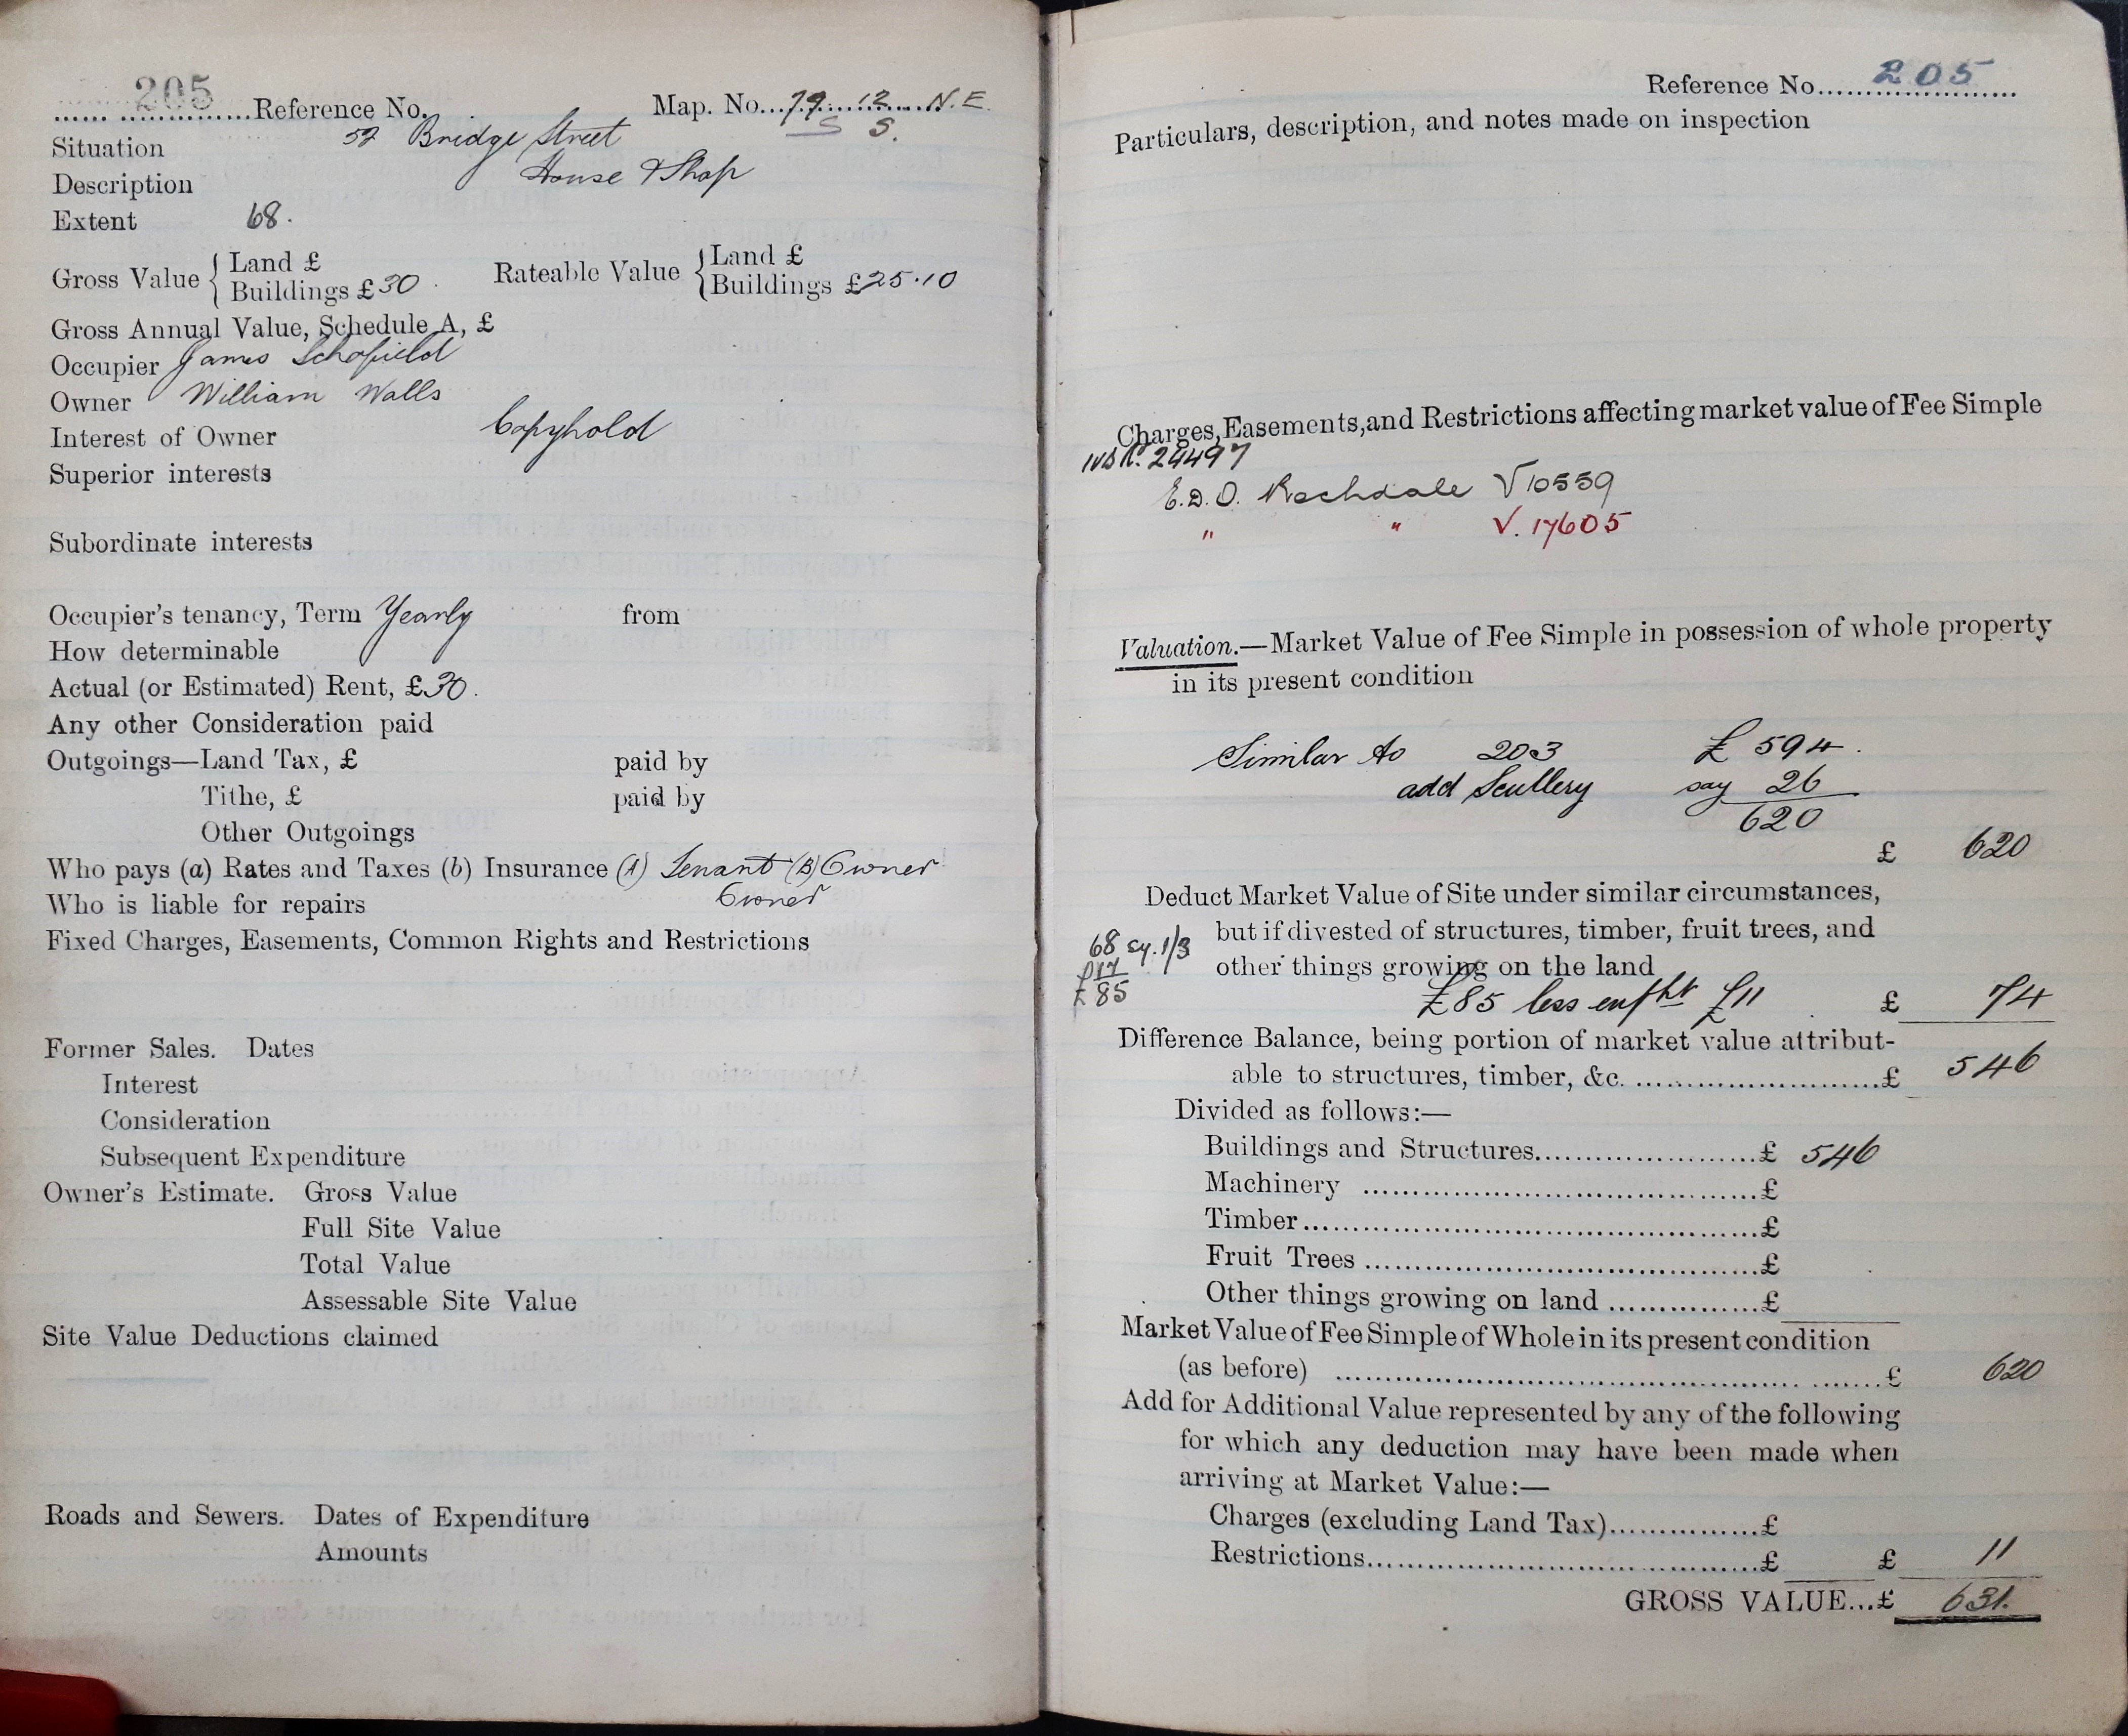 205 Reference No. Map. No. 79. 12. N.E.
S S.
Situation 52 Bridge Street
Description House & Shop
Extent 68.
Gross Value { Land £
Buildings £30. Rateable Value { Land £
Buildings £25.10
Gross Annual Value, Schedule A, £
Occupier James Schofield
Owner William Walls
Interest of Owner Copyhold
Superior interests
Subordinate interests
Occupier's tenancy, Term Yearly from
How determinable
Actual (or Estimated) Rent, £30.
Any other Consideration paid
Outgoings—Land Tax, £ paid by
Tithe, £ paid by
Other Outgoings
Who pays (a) Rates and Taxes (b) Insurance (A) Tenant (B) Owner
Who is liable for repairs Owner
Fixed Charges, Easements, Common Rights and Restrictions
Former Sales. Dates
Interest
Consideration
Subsequent Expenditure
Owner's Estimate. Gross Value
Full Site Value
Total Value
Assessable Site Value
Site Value Deductions claimed
Roads and Sewers. Dates of Expenditure
Amounts
Reference No. 205
Particulars, description, and notes made on inspection
Charges, Easements, and Restrictions affecting market value of Fee Simple
24497
E.D.O. Rochdale V10559
" " V. 17605
Valuation.—Market Value of Fee Simple in possession of whole property
in its present condition
Similar to 203 £ 594.
add Scullery say 26
620
£ 620
Deduct Market Value of Site under similar circumstances,
but if divested of structures, timber, fruit trees, and
68 sy. 1/3
other things growing on the land
17
£85
£85 less enfht £11 £ 74
Difference Balance, being portion of market value attribut-
able to structures, timber, &c. £ 546
Divided as follows:—
Buildings and Structures £ 546
Machinery £
Timber £
Fruit Trees £
Other things growing on land £
Market Value of Fee Simple of Whole in its present condition
(as before) £ 620
Add for Additional Value represented by any of the following
for which any deduction may have been made when
arriving at Market Value:—
Charges (excluding Land Tax) £
Restrictions £ £ 11
GROSS VALUE...£ 631.